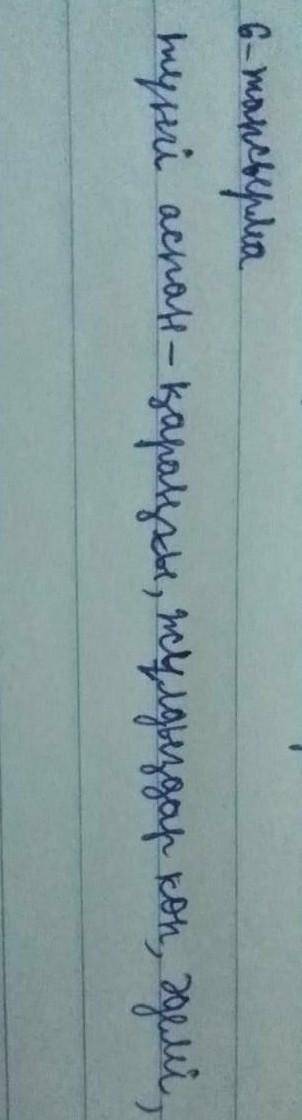 6-тапсырма
түнгі аспан - қараңғы, жұлдыздар көп, әдемі,